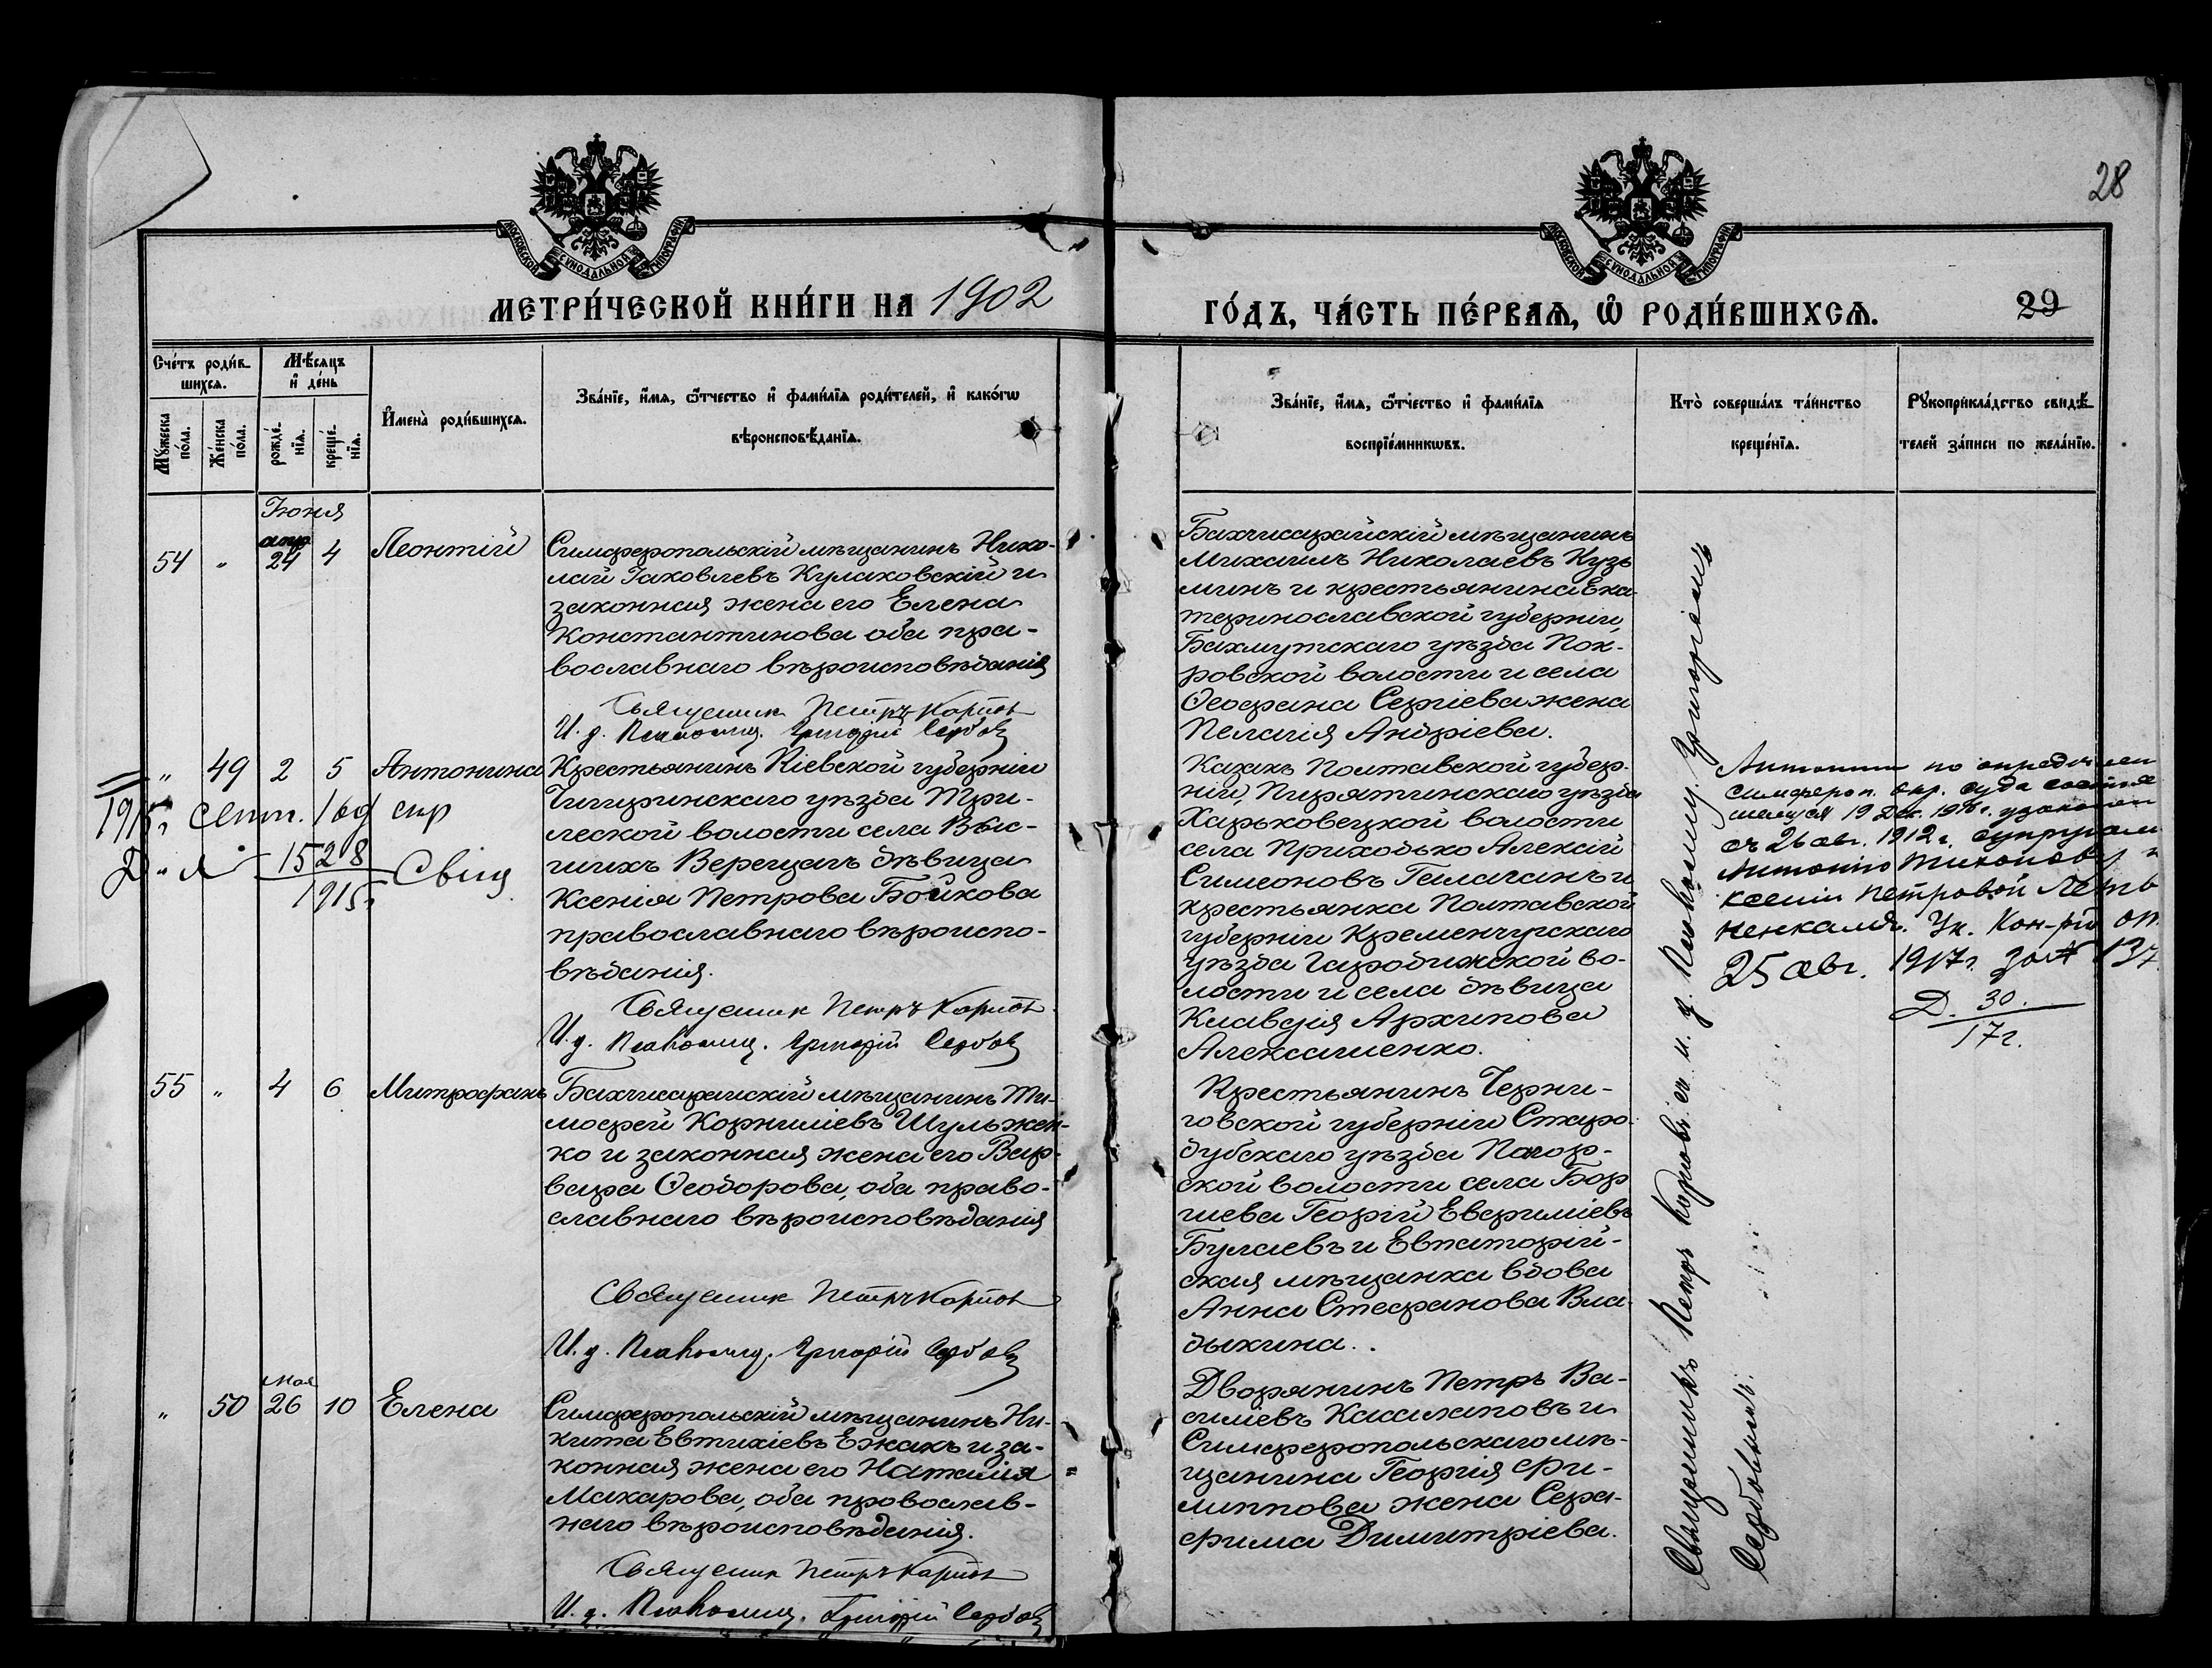 28
МОСКОВСКОЙ СѴНОДАЛЬНОЙ ТИПОГРАФІИ
МОСКОВСКОЙ СѴНОДАЛЬНОЙ ТИПОГРАФІИ
МЕТРИ́ЧЕСКОЙ КНИ́ГИ НА 1902
ГО́ДЪ, ЧА́СТЬ ПЕ́РВАѦ, Ѡ҆ РОДИ́ВШИХСѦ.
29
Сче́тъ роди́в-
шихсѧ.
Мꙋ́жеска
по́ла.
Же́нска
по́ла.
Мѣ́сѧцъ
и҆ де́нь
рожде́-
нїѧ.
креще́-
нїѧ.
И҆мена̀ роди́вшихсѧ.
Зва́нїе, и҆́мѧ, ѻ҆́тчество и҆ фами́лїѧ роди́телей, и҆ како́гѡ
вѣроисповѣ́данїѧ.
Зва́нїе, и҆́мѧ, ѻ҆́тчество и҆ фами́лїѧ
воспрїе́мникѡвъ.
Кто̀ соверша́лъ та́инство
креще́нїѧ.
Рꙋкоприкла́дство свидѣ́-
телей за́писи по жела́нїю.
Іюня
54 " апр 24 4 Леонтій
Симферопольскій мѣщанинъ Нико-
лай Іаковлевъ Кулаковскій и
законная жена его Елена
Константинова оба пра-
вославнаго вѣроисповѣданія
Священник Петръ Карпов
И. д. Псаломщ. Григорій Сербов
Бахчисарайскій мѣщанинъ
Михаилъ Николаевъ Кузь
минъ и крестьянина Ека-
теринославской губерніи,
Бахмутскаго уѣзда Пок-
ровской волости и села
Ѳеофана Сергіева жена
Пелагія Андріева.
" 49 2 5 Антонина
Крестьянинъ Кіевской губерніи
Чигиринскаго уѣзда Три-
лѣской волости села Выс-
шихъ Верещакъ дѣвица
Ксенія Петрова Бойкова
православнаго вѣроиспо-
вѣданія.
Священник Петръ Карпов
И. д. Псаломщ. Григорій Сербов
1915 г. сент.
Д. 1528
1915 г.
Казакъ Полтавской губер-
ніи, Пирятинскаго уѣзда
Харьковецкой волости
села Приходько Алексій
Симеоновъ Галаганъ и
крестьянка Полтавской
губерніи Кременчугскаго
уѣзда Городижской во-
лости и села дѣвица
Клавдія Архипова
Алексашенко.
Антонина по опредѣлен
симфероп. окр. суда состоя
шемуся 19 Дек. 191 г. узаконен
съ 26 авг. 1912 г. супругам
Антонію Тихонову и
Ксеніи Петровой
Ук. Кон-ріи от
25 авг. 1917 г. за № 137
Д. 30.
17 г.
55 " 4 6 Митрофанъ
Бахчисарайскій мѣщанинъ Ти-
мофей Корниліевъ Шульжен-
ко и законная жена его Вар-
вара Ѳеодорова, оба право-
славнаго вѣроисповѣданія
Священник Петръ Карпов
И. д. Псаломщ. Григорій Сербов
Крестьянинъ Черни-
говской губерніи Старо-
дубскаго уѣзда Погор-
ской волости села Бор
щева Георгій Евфиміевъ
Булаевъ и Евпаторій-
ская мѣщанка вдова
Анна Стефанова Вла-
дыкина.
" 50 Мая 26 10 Елена
Симферопольскій мѣщанинъ Ни-
кита Евтихіевъ Ежакъ и за-
конная жена его Наталія
Макарова, оба провослав-
наго вѣроисповѣданія.
Священник Петръ Карпов
И. д. Псаломщ. Григорій Сербов
Дворянинъ Петръ Ва-
силіевъ Кашлаповъ и
Симферопольскаго мѣ-
щанина Георгія Фи-
липпова жена Сера-
фима Димитріева.
Священникъ Петръ Карповъ съ и. д. Псаломщ. Григоріемъ
Сербовымъ.